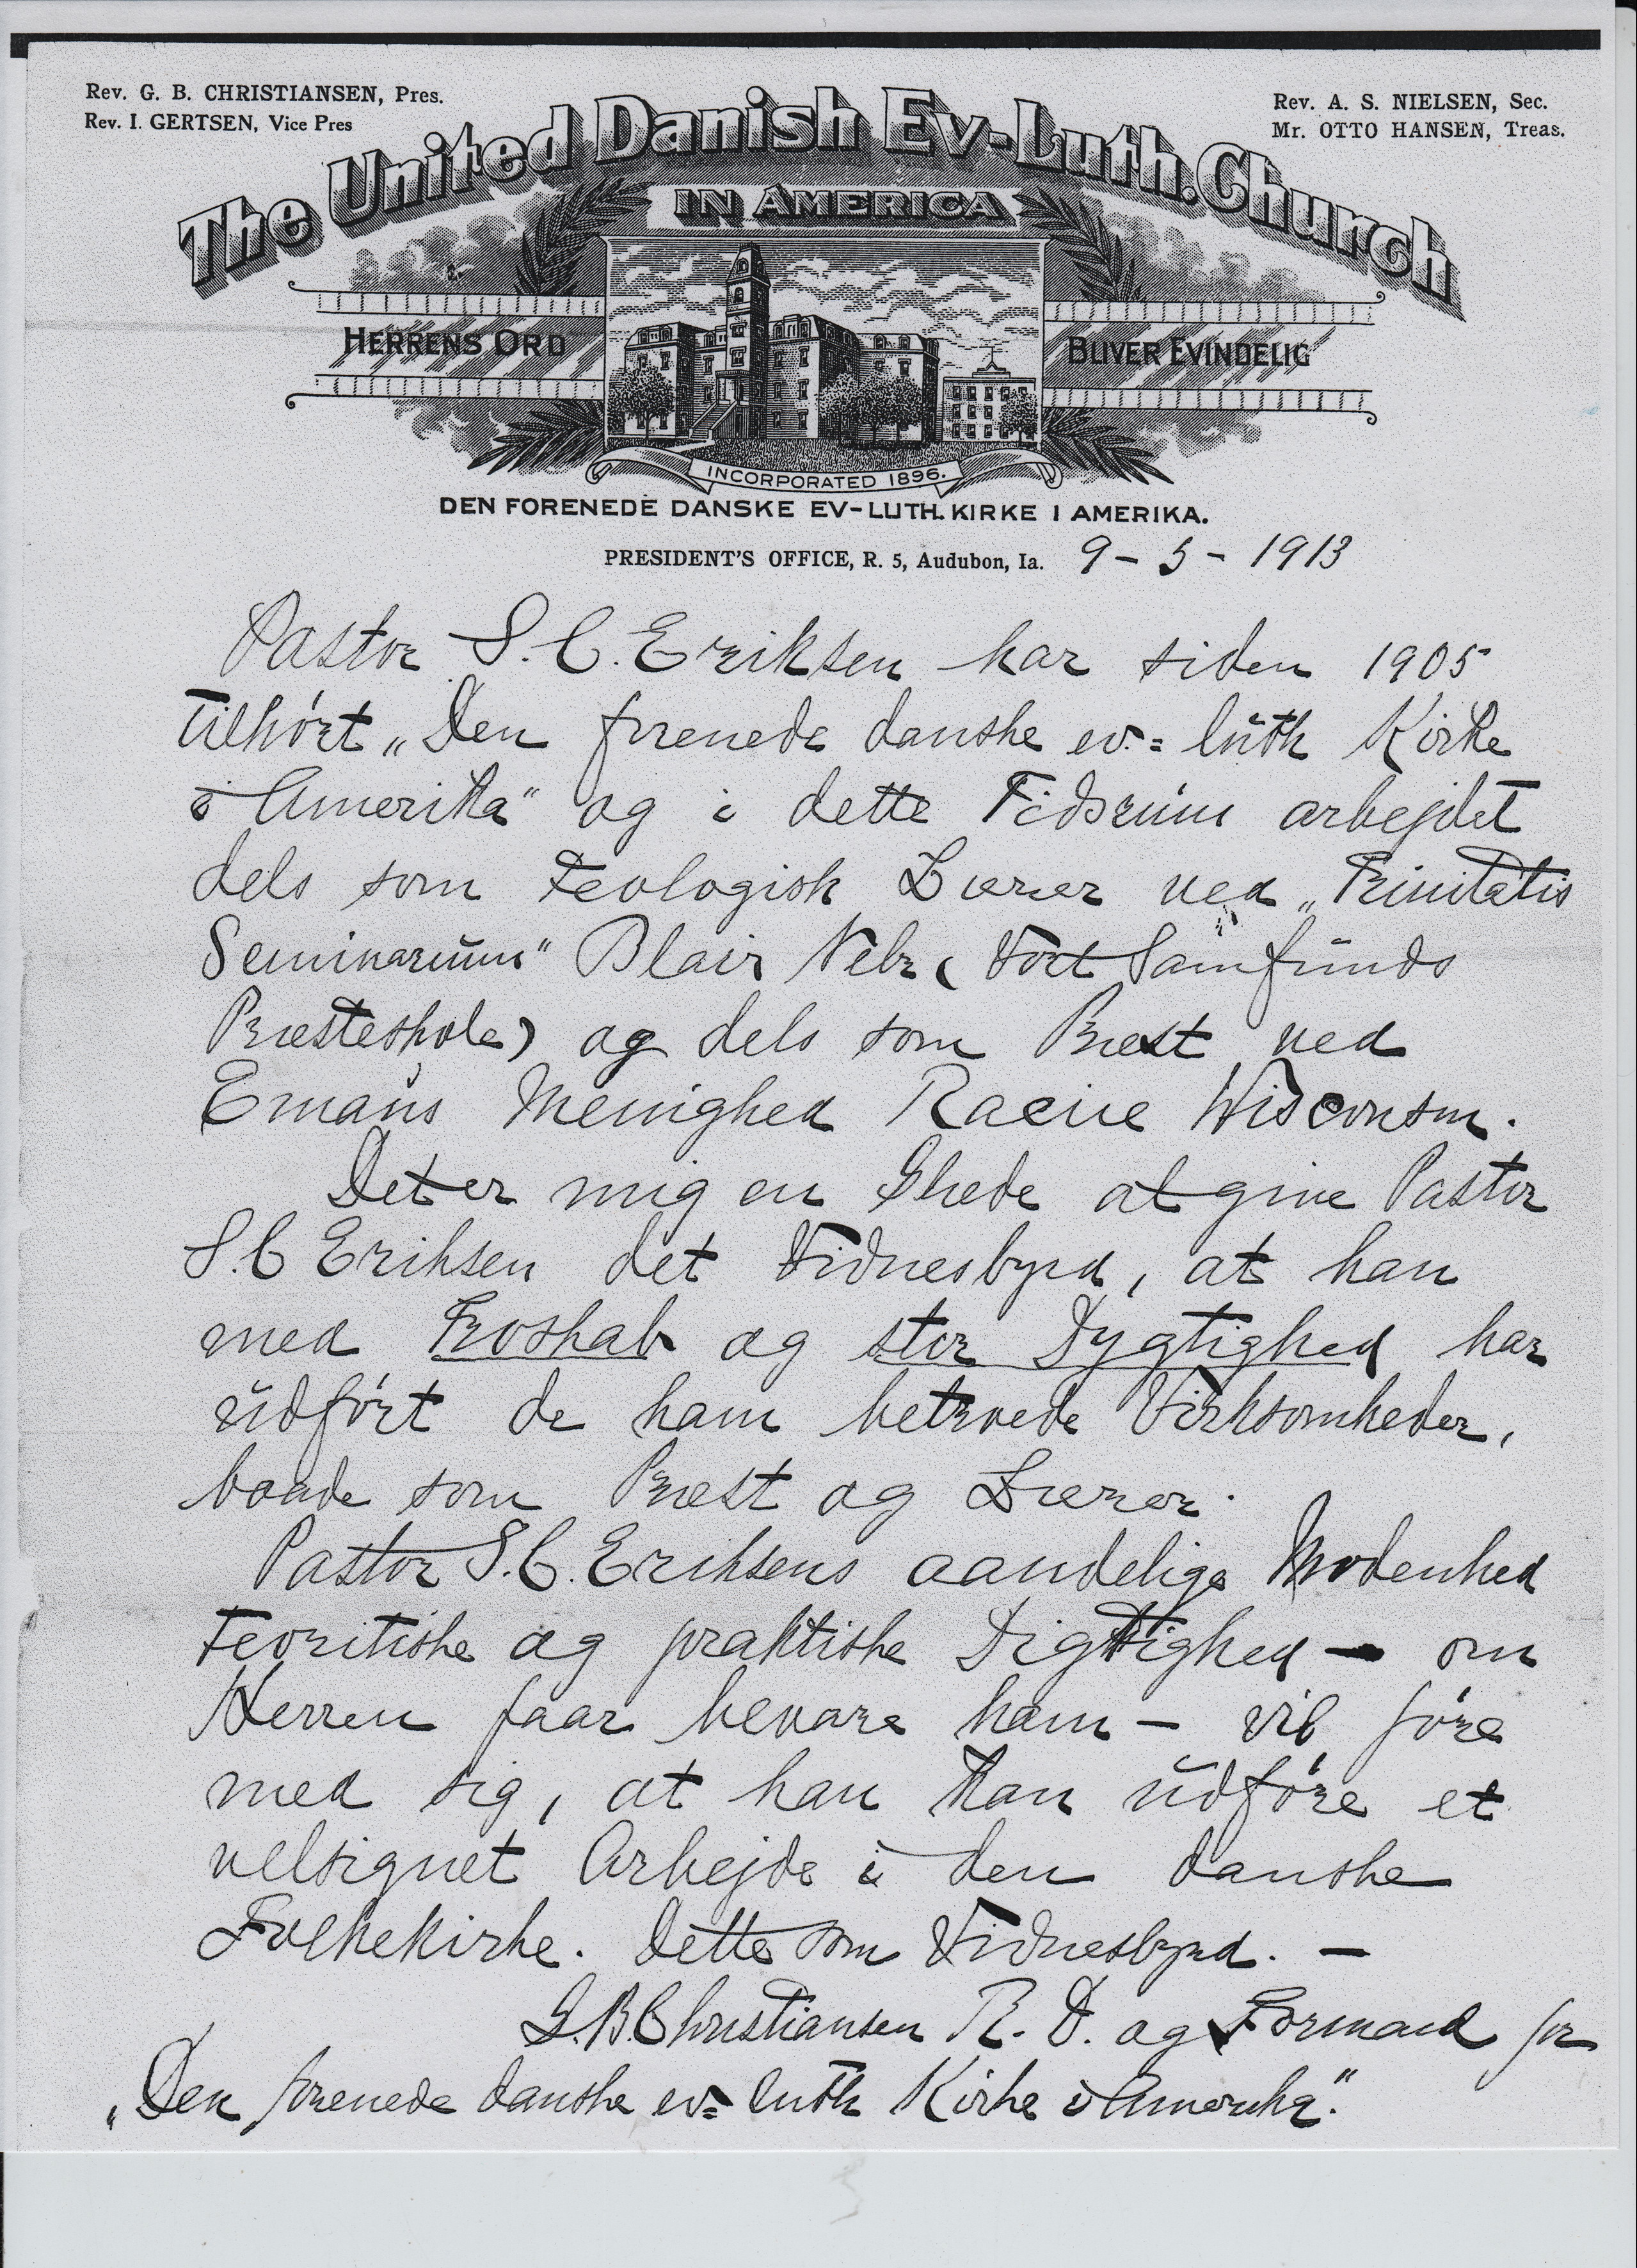 Rev. G. B. CHRISTIANSEN, Pres.
Rev. I. GERTSEN, Vice Pres
Rev. A. S. NIELSEN, Sec.
Mr. OTTO HANSEN, Treas.
The United Danish Ev-Luth. Church
IN AMERICA
HERRENS ORD
BLIVER EVINDELIG
INCORPORATED 1896.
DEN FORENEDE DANSKE EV-LUTH. KIRKE I AMERIKA.
PRESIDENT'S OFFICE, R. 5, Audubon, Ia. 9-5-1913
Pastor S. C. Eriksen har siden 1905
tilhört „Den forenede danske ev.= luth Kirke
i Amerika" og i dette Tidsrum arbejdet
dels som teologisk Lærer ved „Trinitatis
Seminarium" Blair Nebr (Vort Samfunds
Præsteskole) og dels som Præst ved
Emaus Menighed Racine Wisconsin.
Det er mig en Glæde at give Pastor
S. C Eriksen det Vidnesbyrd, at han
med Troskab og stor Dygtighed har
udfört de ham betroede Virksomheder,
baade som Præst og Lærer.
Pastor S. C. Eriksens aandelige Modenhed
teoritiske og praktiske Digtighed — om
Herren faar bevare ham — vil före
med sig, at han kan udföre et
velsignet Arbejde i den danske
Folkekirke. Dette som Vidnesbyrd. —
G. B. Christiansen R. D. og Formand for
„Den forenede danske ev= luth Kirke i Amerika".